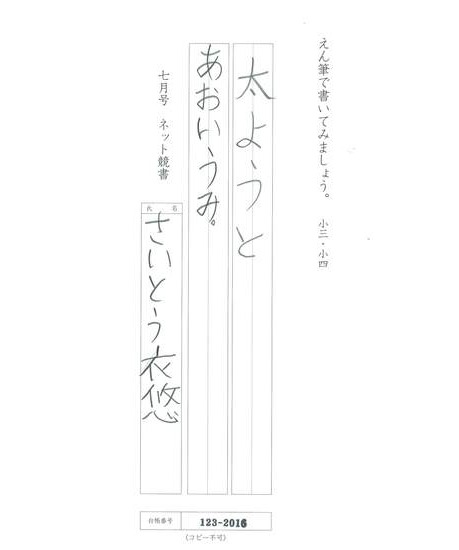 えん筆で書いてみましょう。 小三・小四
太ようと
あおいうみ。
七月号 ネット競書
氏名
さいとう衣悠
台帳番号 123-2016
(コピー不可)